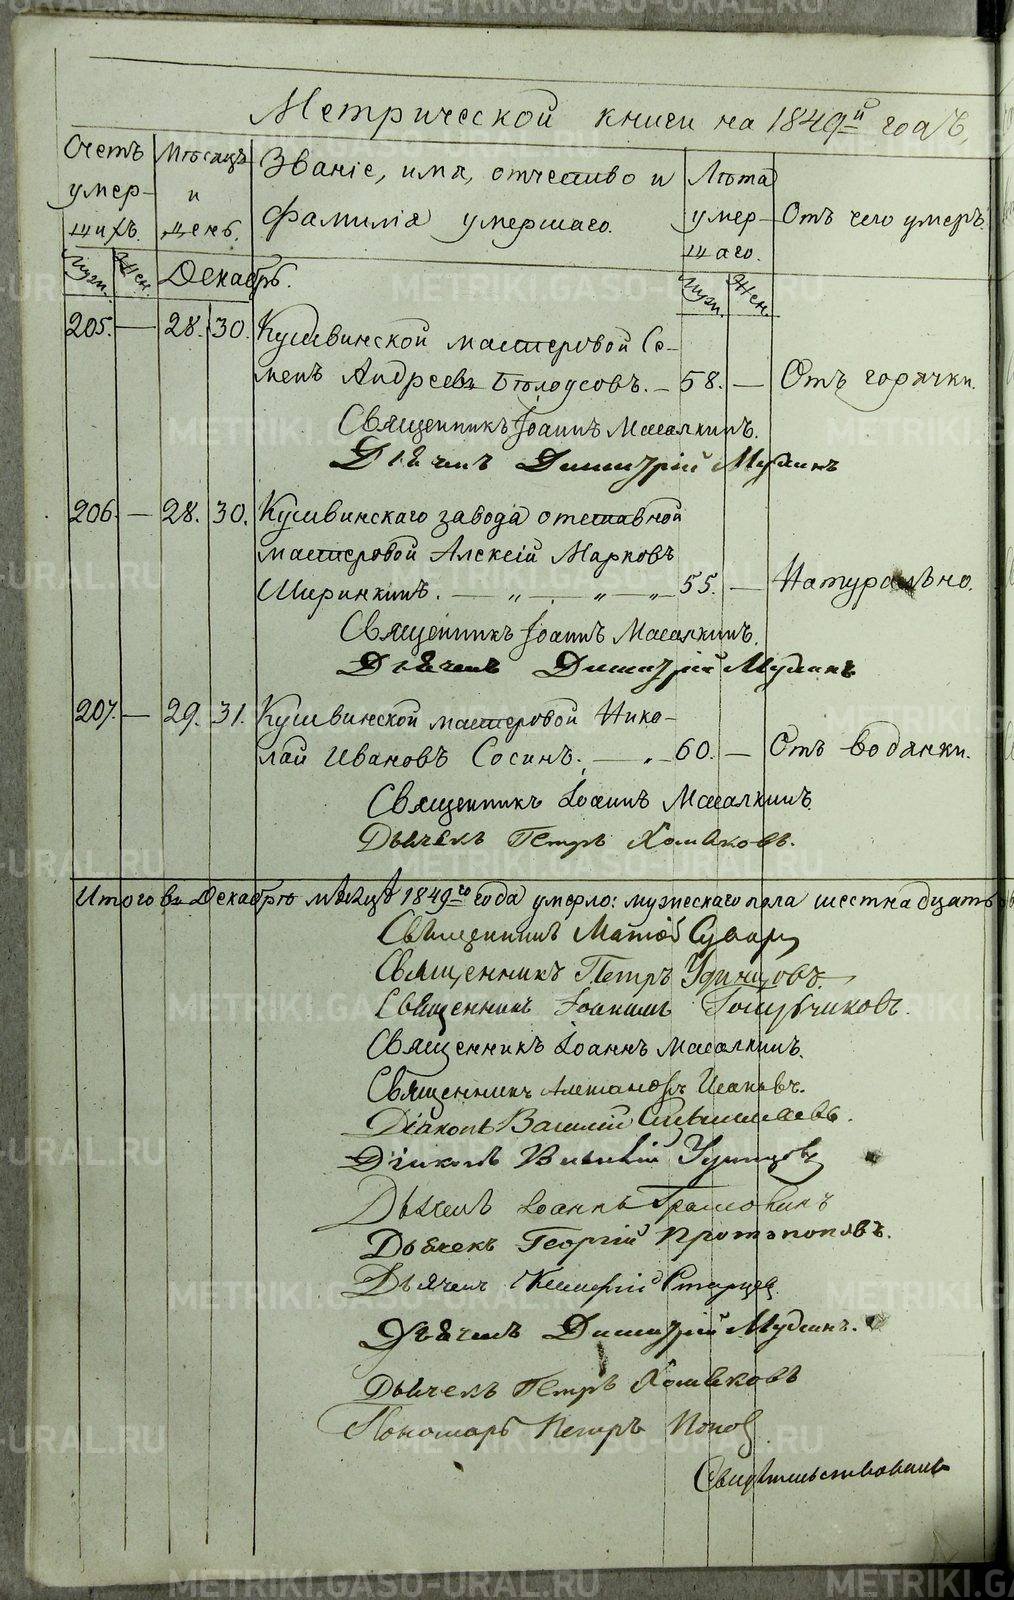 Метрической книги на 1849й годъ,
Счетъ умершихъ.
Мѣсяцъ и день.
Званіе, имя, отчество и фамилія умершаго.
Лѣта умершаго.
Отъ чего умеръ.
Муж. Жен. Декабрь. Муж. Жен.
205. — 28. 30. Кушвинской мастеровой Се-
менъ Андреевъ Бѣлоусовъ. — 58. — Отъ горячки.
Священникъ Іоаннъ Масалкинъ.
Дьячекъ Димитрій Мудинъ
206. — 28. 30. Кушвинскаго завода отставной
мастеровой Алексій Марковъ
Ширинкинъ. — „ — „ — „ 55. — Натурально.
Священникъ Іоаннъ Масалкинъ.
Дьячекъ Димитрій Мудинъ
207. — 29. 31. Кушвинской мастеровой Нико-
лай Ивановъ Сосинъ. — „ 60. — Отъ водянки.
Священникъ Іоаннъ Масалкинъ
Дьячекъ Петръ Хомяковъ.
Итого въ Декабрѣ мѣсяцѣ 1849го года умерло: мужескаго пола шестнадцать
Священникъ
Священникъ Петръ Удинцовъ.
Священникъ Іоаннъ Голубчиковъ.
Священникъ Іоаннъ Масалкинъ.
Священникъ
Діаконъ Василій
Діаконъ Удинцовъ
Дьячекъ Іоаннъ
Дьячекъ Георгій Протопоповъ.
Дьячекъ Старцев
Дьячекъ Димитрій Мудинъ.
Дьячекъ Петръ Хомяковъ
Пономарь Петръ Попов
Свидѣтельствовалъ
METRIKI.GASO-URAL.RU